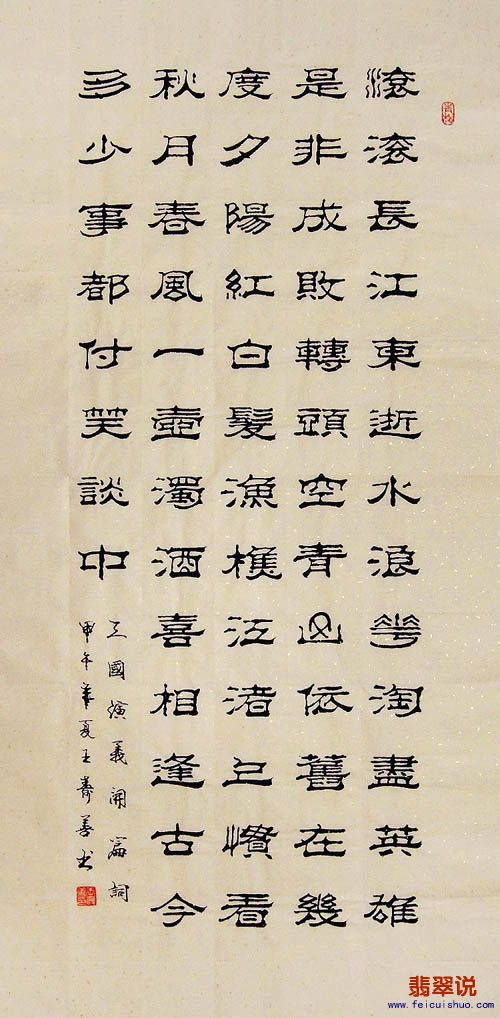 滾滾長江東逝水浪花淘盡英雄
是非成敗轉頭空青山依舊在幾
度夕陽紅白髮漁樵江渚上慣看
秋月春風一壺濁酒喜相逢古今
多少事都付笑談中
三國演義開篇詞
甲午年夏王壽善书
翡翠说
www.feicuishuo.com